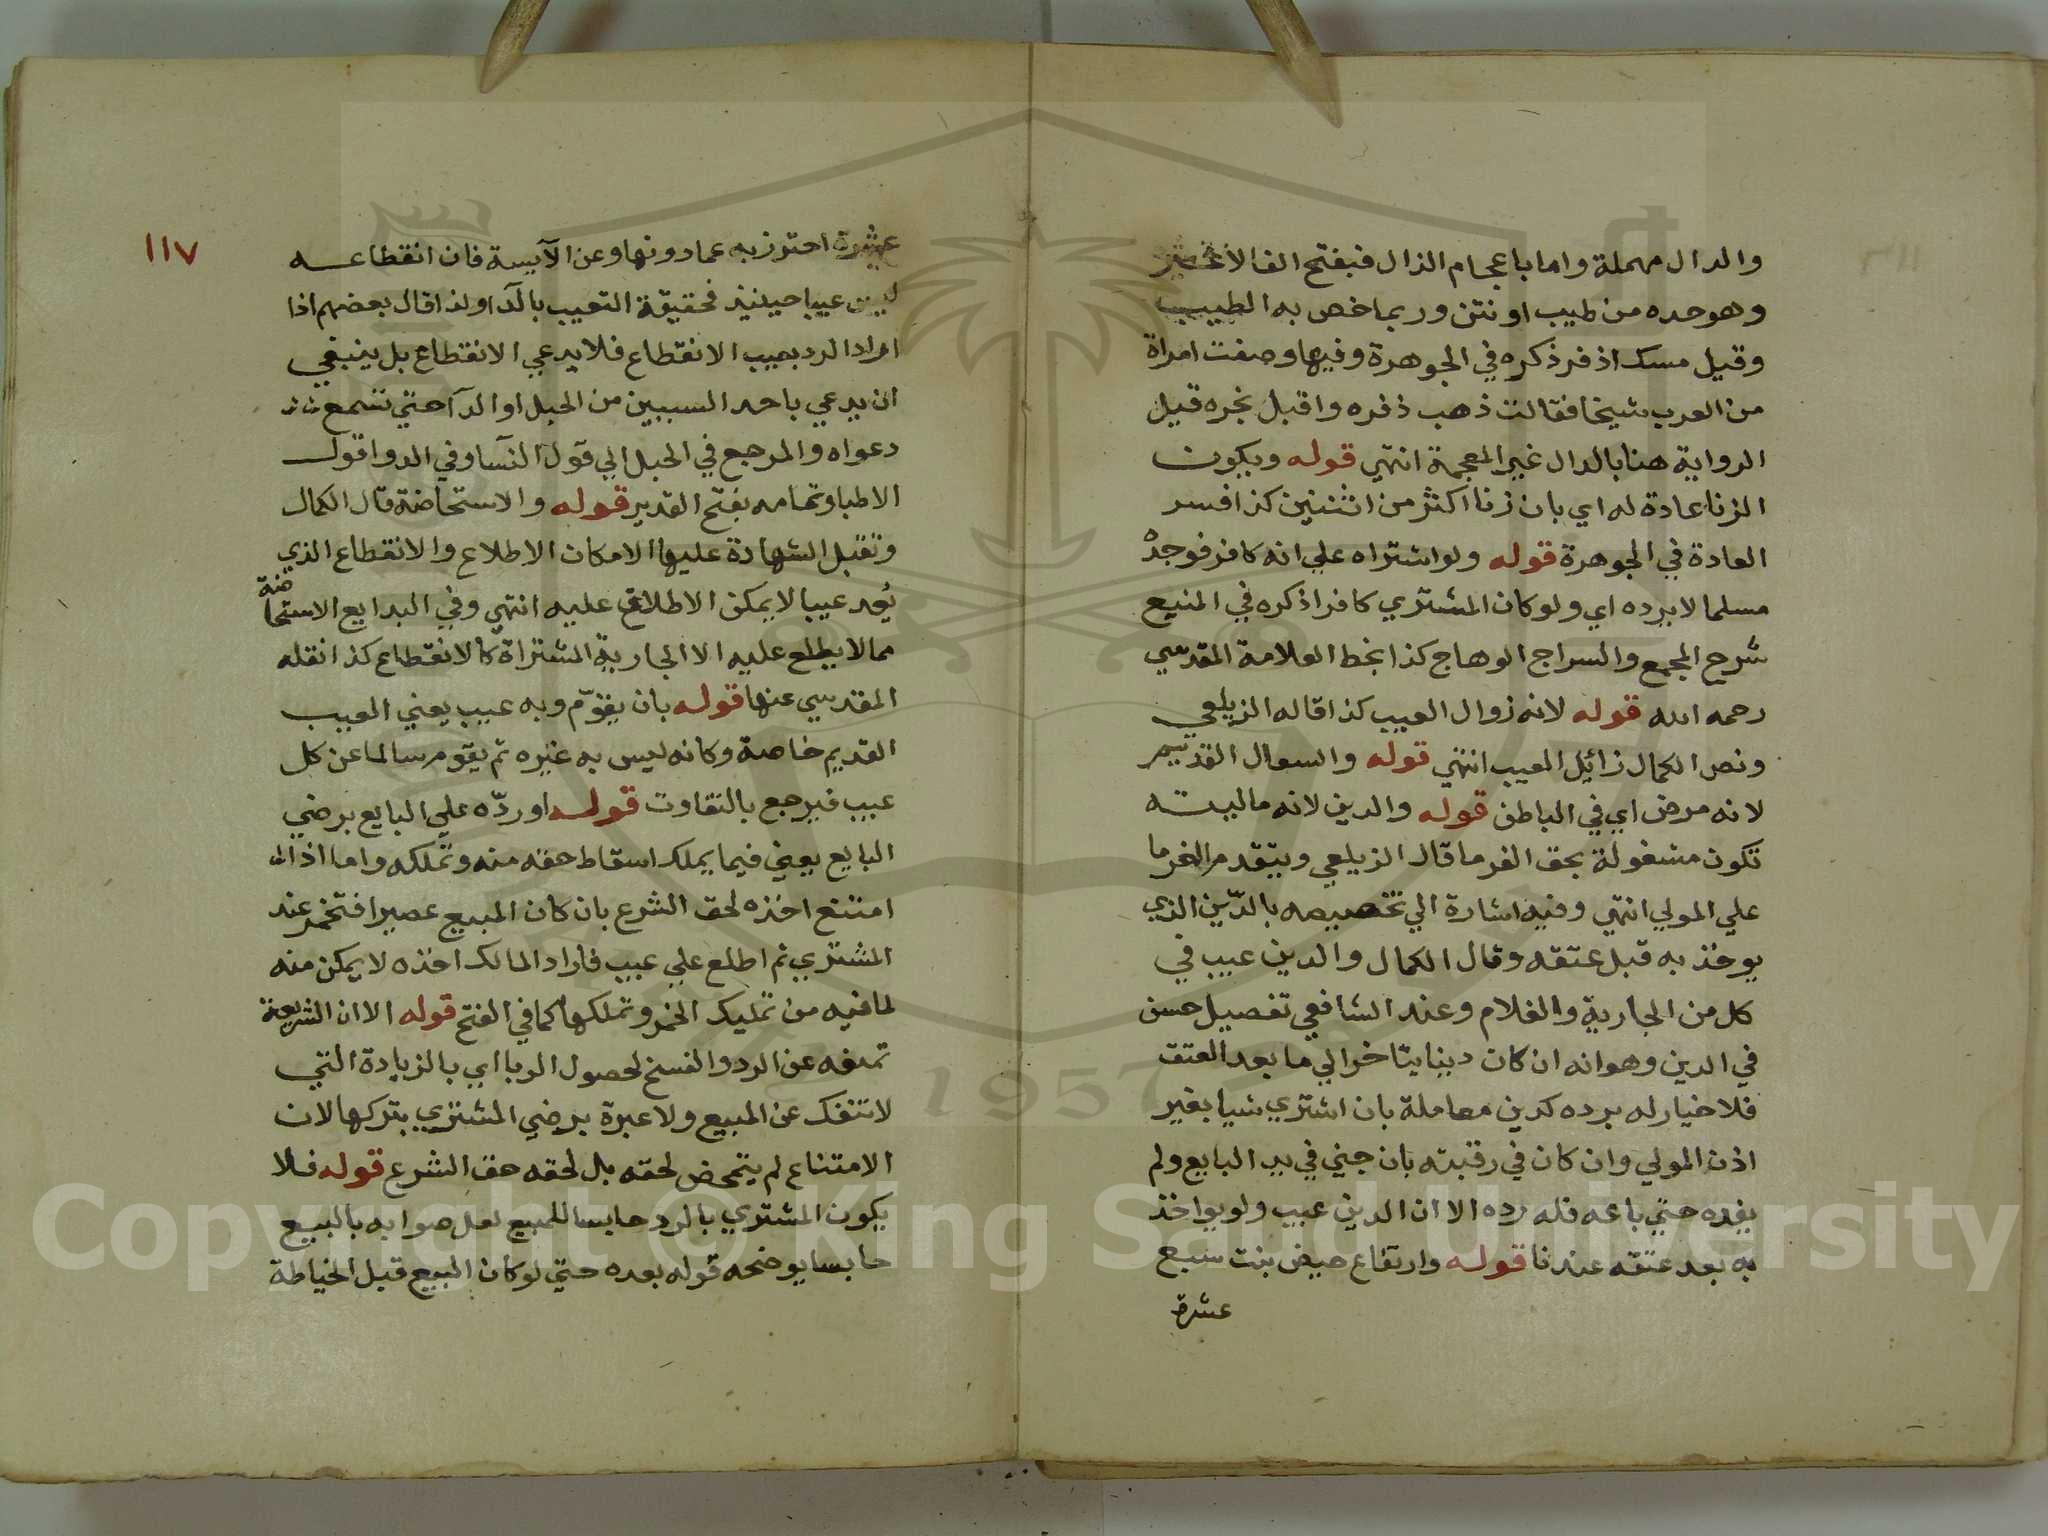 والدال مهملة واما باعجام الذال فبفتح الفا لاغير
وهوحده من طيب او نتن وربما خص به الطيب
وقيل مسك اذفر ذكره في الجوهرة وفيها وصفت امراة
من العرب شيخا فقالت ذهب ذفره واقبل بخره قيل
الرواية هنا بالدال غير المعجمة انتهي قوله ويكون
الزنا عادة له اي بان زنا اكثر من اثنين كذا فسر
العادة في الجوهرة قوله ولو اشتراه علي انه كافر فوجده
مسلما لا يرده اي ولو كان المشتري كافرا ذكره في المنبع
شرح المجمع والسراج الوهاج كذا بخط العلامة المقدسي
رحمه الله قوله لانه زوال العيب كذا قاله الزيلعي
ونص الكمال زائيل العيب انتهي قوله والسعال القديم
لانه مرض اي في الباطن قوله والدين لانه ماليته
تكون مشغولة بحق الغرما قال الزيلعي ويتقدم الغرما
علي المولي انتهي وفيه اشارة الي تخصيصه بالدّين الذي
يوخذ به قبل عتقه وقال الكمال والدين عيب في
كل من الجارية والغلام وعند الشافعي تفصيل حسن
في الدين وهوانه ان كان دينا يتاخر الي ما بعد العتق
فلا خيار له برده كدين معاملة بان اشتري شيا بغير
اذن المولي وان كان في رقبته بان جني في يد البايع ولم
يفده حتي باعه فله رده الا ان الدين عيب ولو يواخذ
به بعد عتقه عندنا قوله وارتفاع حيض بنت سبع
عشرة
١١٧
عشرة احترز به عما دونها وعن الآيسة فان انقطاعه
ليس عيبا حينيذ فحقيقة التعيب بالدآ ولذا قال بعضهم اذا
اراد الرد بعيب الانقطاع فلا يدعي الانقطاع بل ينبغي
ان يدعي باحد السببين من الحبل او الدآ حتي تسمع
دعواه والمرجع في الحبل الي قول النسآ وفي الدوا قول
الاطبا وتمامه بفتح القدير قوله والاستحاضة قال الكمال
وتقبل الشهادة عليها الامكان الاطلاع والانقطاع الذي
يُعد عيبا لا يمكن الاطلاع عليه انتهي وفي البدايع الاستحاضة
مما لا يطلع عليه الا الجارية المشتراة كالانقطاع كذا نقله
المقدسي عنها قوله بان يقوّم وبه عيب يعني العيب
القديم خاصة وكانه ليس به غيره ثم يقوم سالما عن كل
عيب فيرجع بالتفاوت قوله او ردّه علي البايع برضي
البايع يعني فيما يملك اسقاط حقه منه وتملكه واما اذا
امتنع اخذه لحق الشرع بان كان المبيع عصيرا فتخمر عند
المشتري ثم اطلع علي عيب فاراد المالك اخذه لا يمكن منه
لما فيه من تمليك الخمر وتملكها كما في الفتح قوله الا ان الشريعة
تمنعه عن الرد والفسخ لحصول الربا اي بالزيادة التي
لا تنفك عن المبيع ولا عبرة برضي المشتري بتركها لان
الامتناع لم يتمحض لحقه بل لحقه حق الشرع قوله فلا
يكون المشتري بالرد حابسا للمبيع لعل صوابه بالبيع
حابسا يوضحه قوله بعده حتي لو كان البيع قبل الخياطة
Copyright © King Saud University
1957